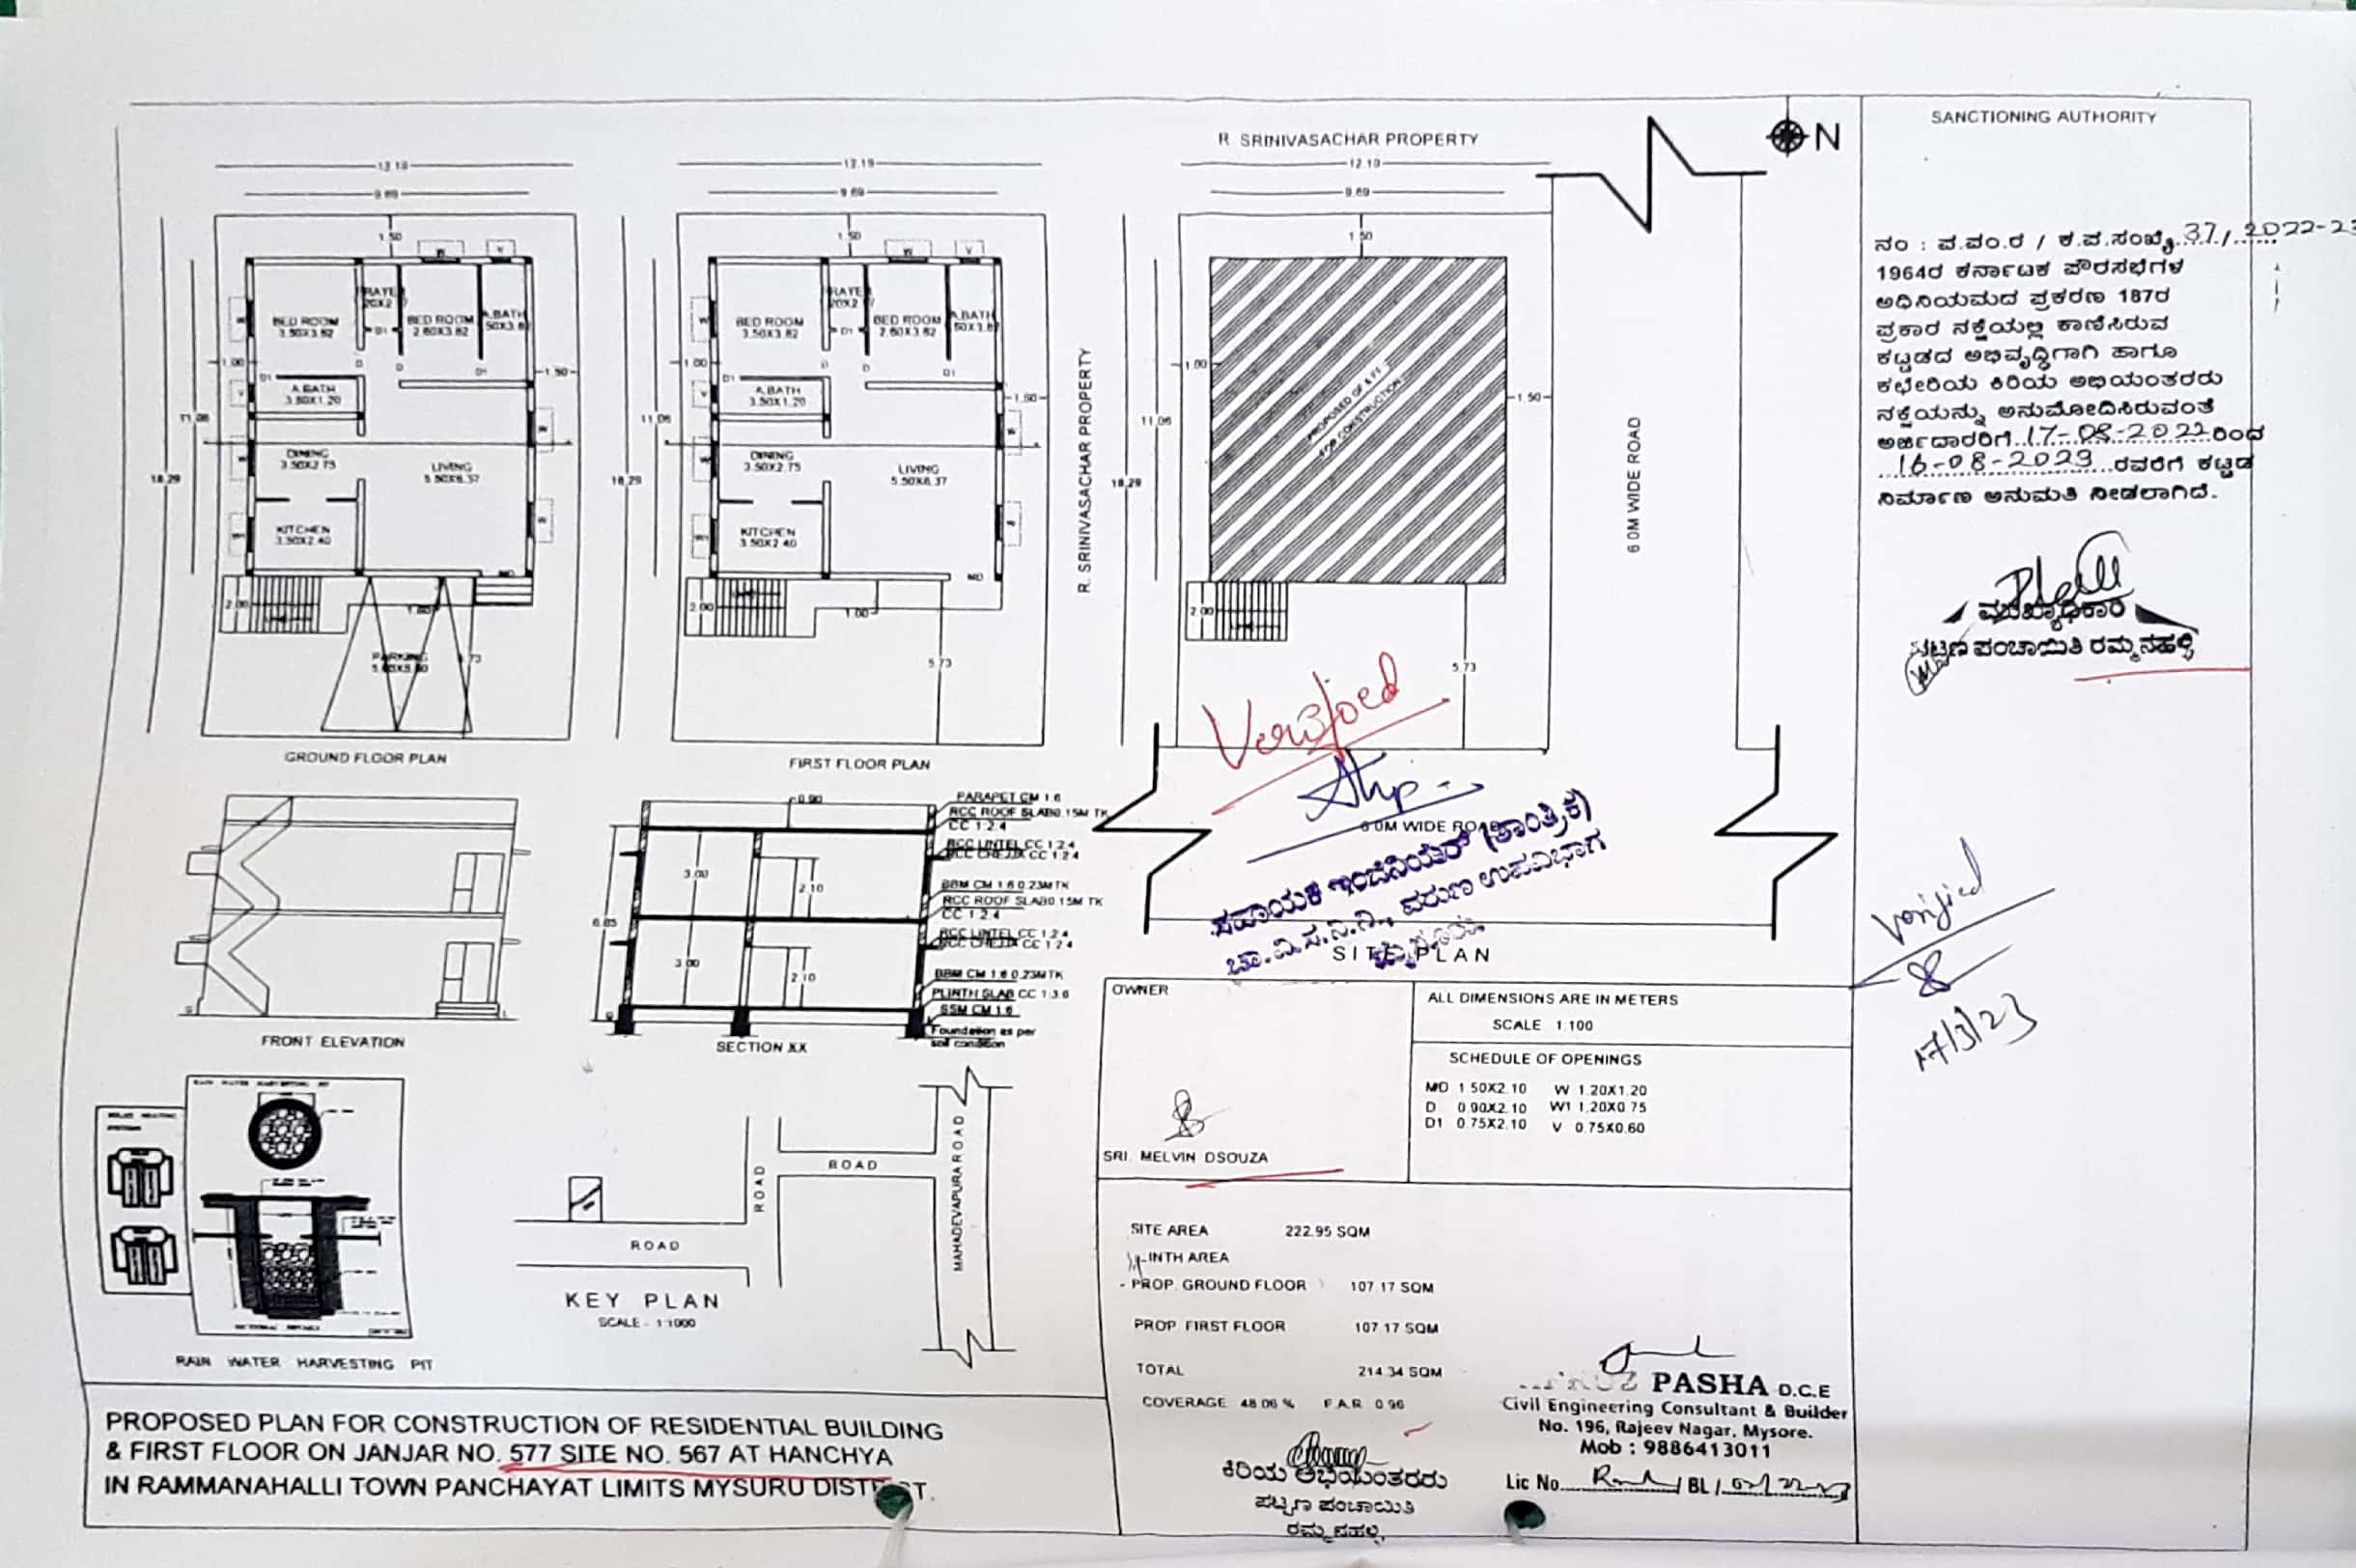 R SRINIVASACHAR PROPERTY
N
12.19
9.69
1.50
W
V
BED ROOM
3.50X3.62
BED ROOM
2.60X3.62
D1
D
D
D1
D1
1.00
1.50
A.BATH
3.50X1.20
11.06
18.29
DINING
3.50X2.75
LIVING
5.50X6.37
KITCHEN
3.50X2.40
MD
2.00
1.00
PARKING
GROUND FLOOR PLAN
12.19
9.69
1.50
BED ROOM
3.50X3.62
BED ROOM
2.60X3.62
D1
D
D
D1
D1
1.00
1.50
A.BATH
3.50X1.20
11.06
18.29
DINING
3.50X2.75
LIVING
5.50X6.37
KITCHEN
3.50X2.40
MD
2.00
1.00
5.73
FIRST FLOOR PLAN
R. SRINIVASACHAR PROPERTY
12.19
9.69
1.50
1.00
1.50
11.06
18.29
FOR CONSTRUCTION
2.00
5.73
6.0M WIDE ROAD
Verified
6.0M WIDE ROAD
ಸಹಾಯಕ ಇಂಜಿನಿಯರ್ (ತಾಂತ್ರಿಕ)
ಚಾ.ವಿ.ಸ.ನಿ.ನಿ., ವರುಣ ಉಪವಿಭಾಗ
SITE PLAN
FRONT ELEVATION
0.90
3.00
2.10
3.00
2.10
PARAPET CM 1:6
RCC ROOF SLAB0.15M TK
CC 1:2:4
RCC LINTEL CC 1:2:4
RCC CHEJJA CC 1:2:4
BBM CM 1:6 0.23M TK
RCC ROOF SLAB0.15M TK
CC 1:2:4
RCC LINTEL CC 1:2:4
RCC CHEJJA CC 1:2:4
BBM CM 1:6 0.23M TK
PLINTH SLAB CC 1:3:6
SSM CM 1:6
Foundation as per
soil condition
SECTION XX
RAIN WATER HARVESTING PIT
ROAD
ROAD
ROAD
MAHADEVAPURA ROAD
KEY PLAN
SCALE - 1:1000
OWNER
SRI. MELVIN DSOUZA
ALL DIMENSIONS ARE IN METERS
SCALE 1:100
SCHEDULE OF OPENINGS
MD 1.50X2.10 W 1.20X1.20
D 0.90X2.10 W1 1.20X0.75
D1 0.75X2.10 V 0.75X0.60
SITE AREA 222.95 SQM
INTH AREA
PROP. GROUND FLOOR 107.17 SQM
PROP FIRST FLOOR 107.17 SQM
TOTAL 214.34 SQM
COVERAGE 48.06 % F.A.R 0.96
ಕಿರಿಯ ಅಭಿಯಂತರರು
ಪಟ್ಟಣ ಪಂಚಾಯಿತಿ
ರಮ್ಮನಹಳ್ಳಿ
PASHA D.C.E
Civil Engineering Consultant & Builder
No. 196, Rajeev Nagar, Mysore.
Mob : 9886413011
Lic No. BL
PROPOSED PLAN FOR CONSTRUCTION OF RESIDENTIAL BUILDING
& FIRST FLOOR ON JANJAR NO. 577 SITE NO. 567 AT HANCHYA
IN RAMMANAHALLI TOWN PANCHAYAT LIMITS MYSURU DISTRICT.
SANCTIONING AUTHORITY
ನಂ : ಪ.ಪಂ.ರ / ಕ.ಪ.ಸಂಖ್ಯೆ 37/2022-23
1964ರ ಕರ್ನಾಟಕ ಪೌರಸಭೆಗಳ
ಅಧಿನಿಯಮದ ಪ್ರಕರಣ 187ರ
ಪ್ರಕಾರ ನಕ್ಷೆಯಲ್ಲಿ ಕಾಣಿಸಿರುವ
ಕಟ್ಟಡದ ಅಭಿವೃದ್ಧಿಗಾಗಿ ಹಾಗೂ
ಕಛೇರಿಯ ಕಿರಿಯ ಅಭಿಯಂತರರು
ನಕ್ಷೆಯನ್ನು ಅನುಮೋದಿಸಿರುವಂತೆ
ಅರ್ಜಿದಾರರಿಗೆ 17-08-2022 ರಿಂದ
16-08-2023 ರವರೆಗೆ ಕಟ್ಟಡ
ನಿರ್ಮಾಣ ಅನುಮತಿ ನೀಡಲಾಗಿದೆ.
ಮುಖ್ಯಾಧಿಕಾರಿ
ಪಟ್ಟಣ ಪಂಚಾಯಿತಿ ರಮ್ಮನಹಳ್ಳಿ
Verified
17/3/23